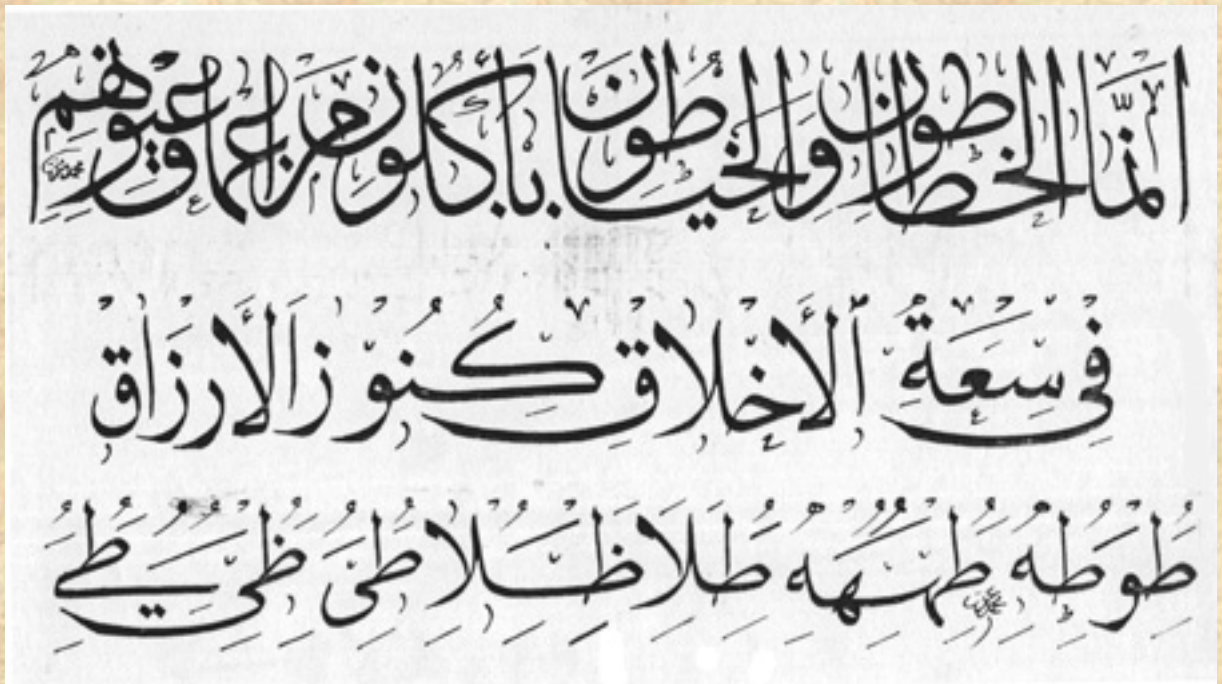 إنما الخطاطون والخياطون يأكلون من أعماق عيونهم
فِي سِعَةِ ٱلْأَخْلَاقِ كُنُوْزُ الْأَرْزَاقِ
طو طه طهه طلا ظلا طى ظى طے